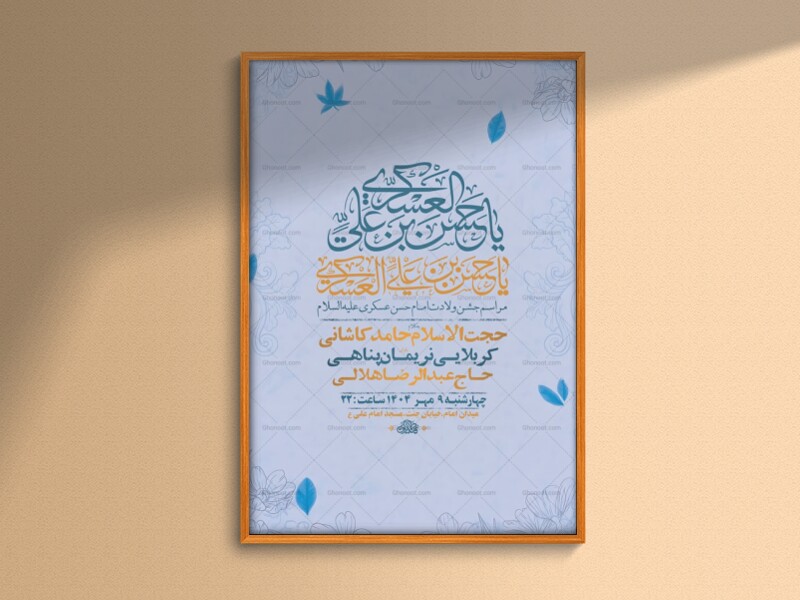 یا حسن بن علی العسکری
یا حسن بن علی العسکری
مراسم جشن ولادت امام حسن عسکری علیه السلام
حجت الاسلام حامد کاشانی
کربلایی نریمان پناهی
حاج عبدالرضا هلالی
چهارشنبه ۹ مهر ۱۴۰۴ ساعت: ۲۲
میدان امام، خیابان جنت، مسجد امام علی ع